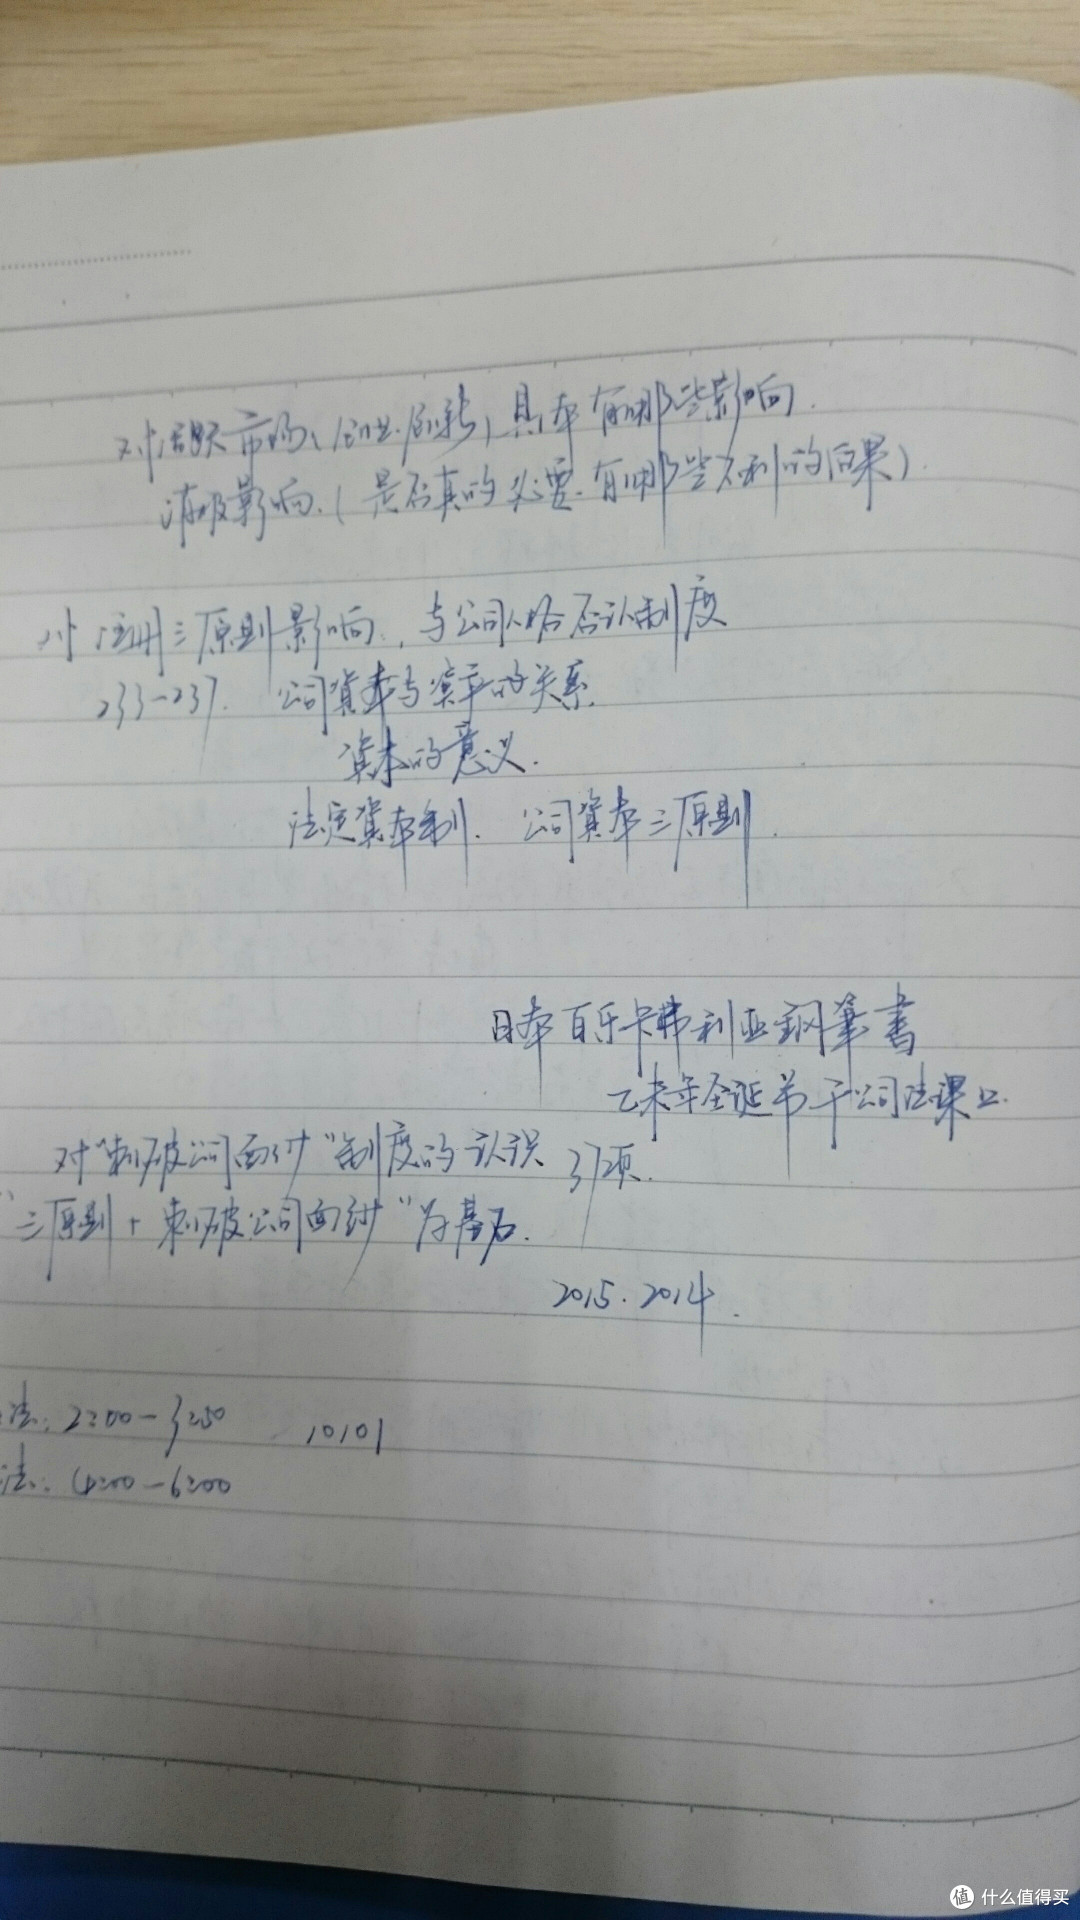 对活跃市场、创业创新,具本有哪些影响.
消极影响.(是否真的必要.有哪些不利的后果).
三原则影响,与公司人格否认制度
233-237. 公司資本与資产的关系.
資本的意义.
法定資本制. 公司資本三原则.
日本百乐卡弗利亚鋼筆書
乙未年圣诞节于公司法课上.
对"刺破公司面纱"制度的认识 37项.
三原则+刺破公司面纱"为基石.
2015.2014.
法: 2:00-3:50 10101
法: 4:00-6:00
值 什么值得买